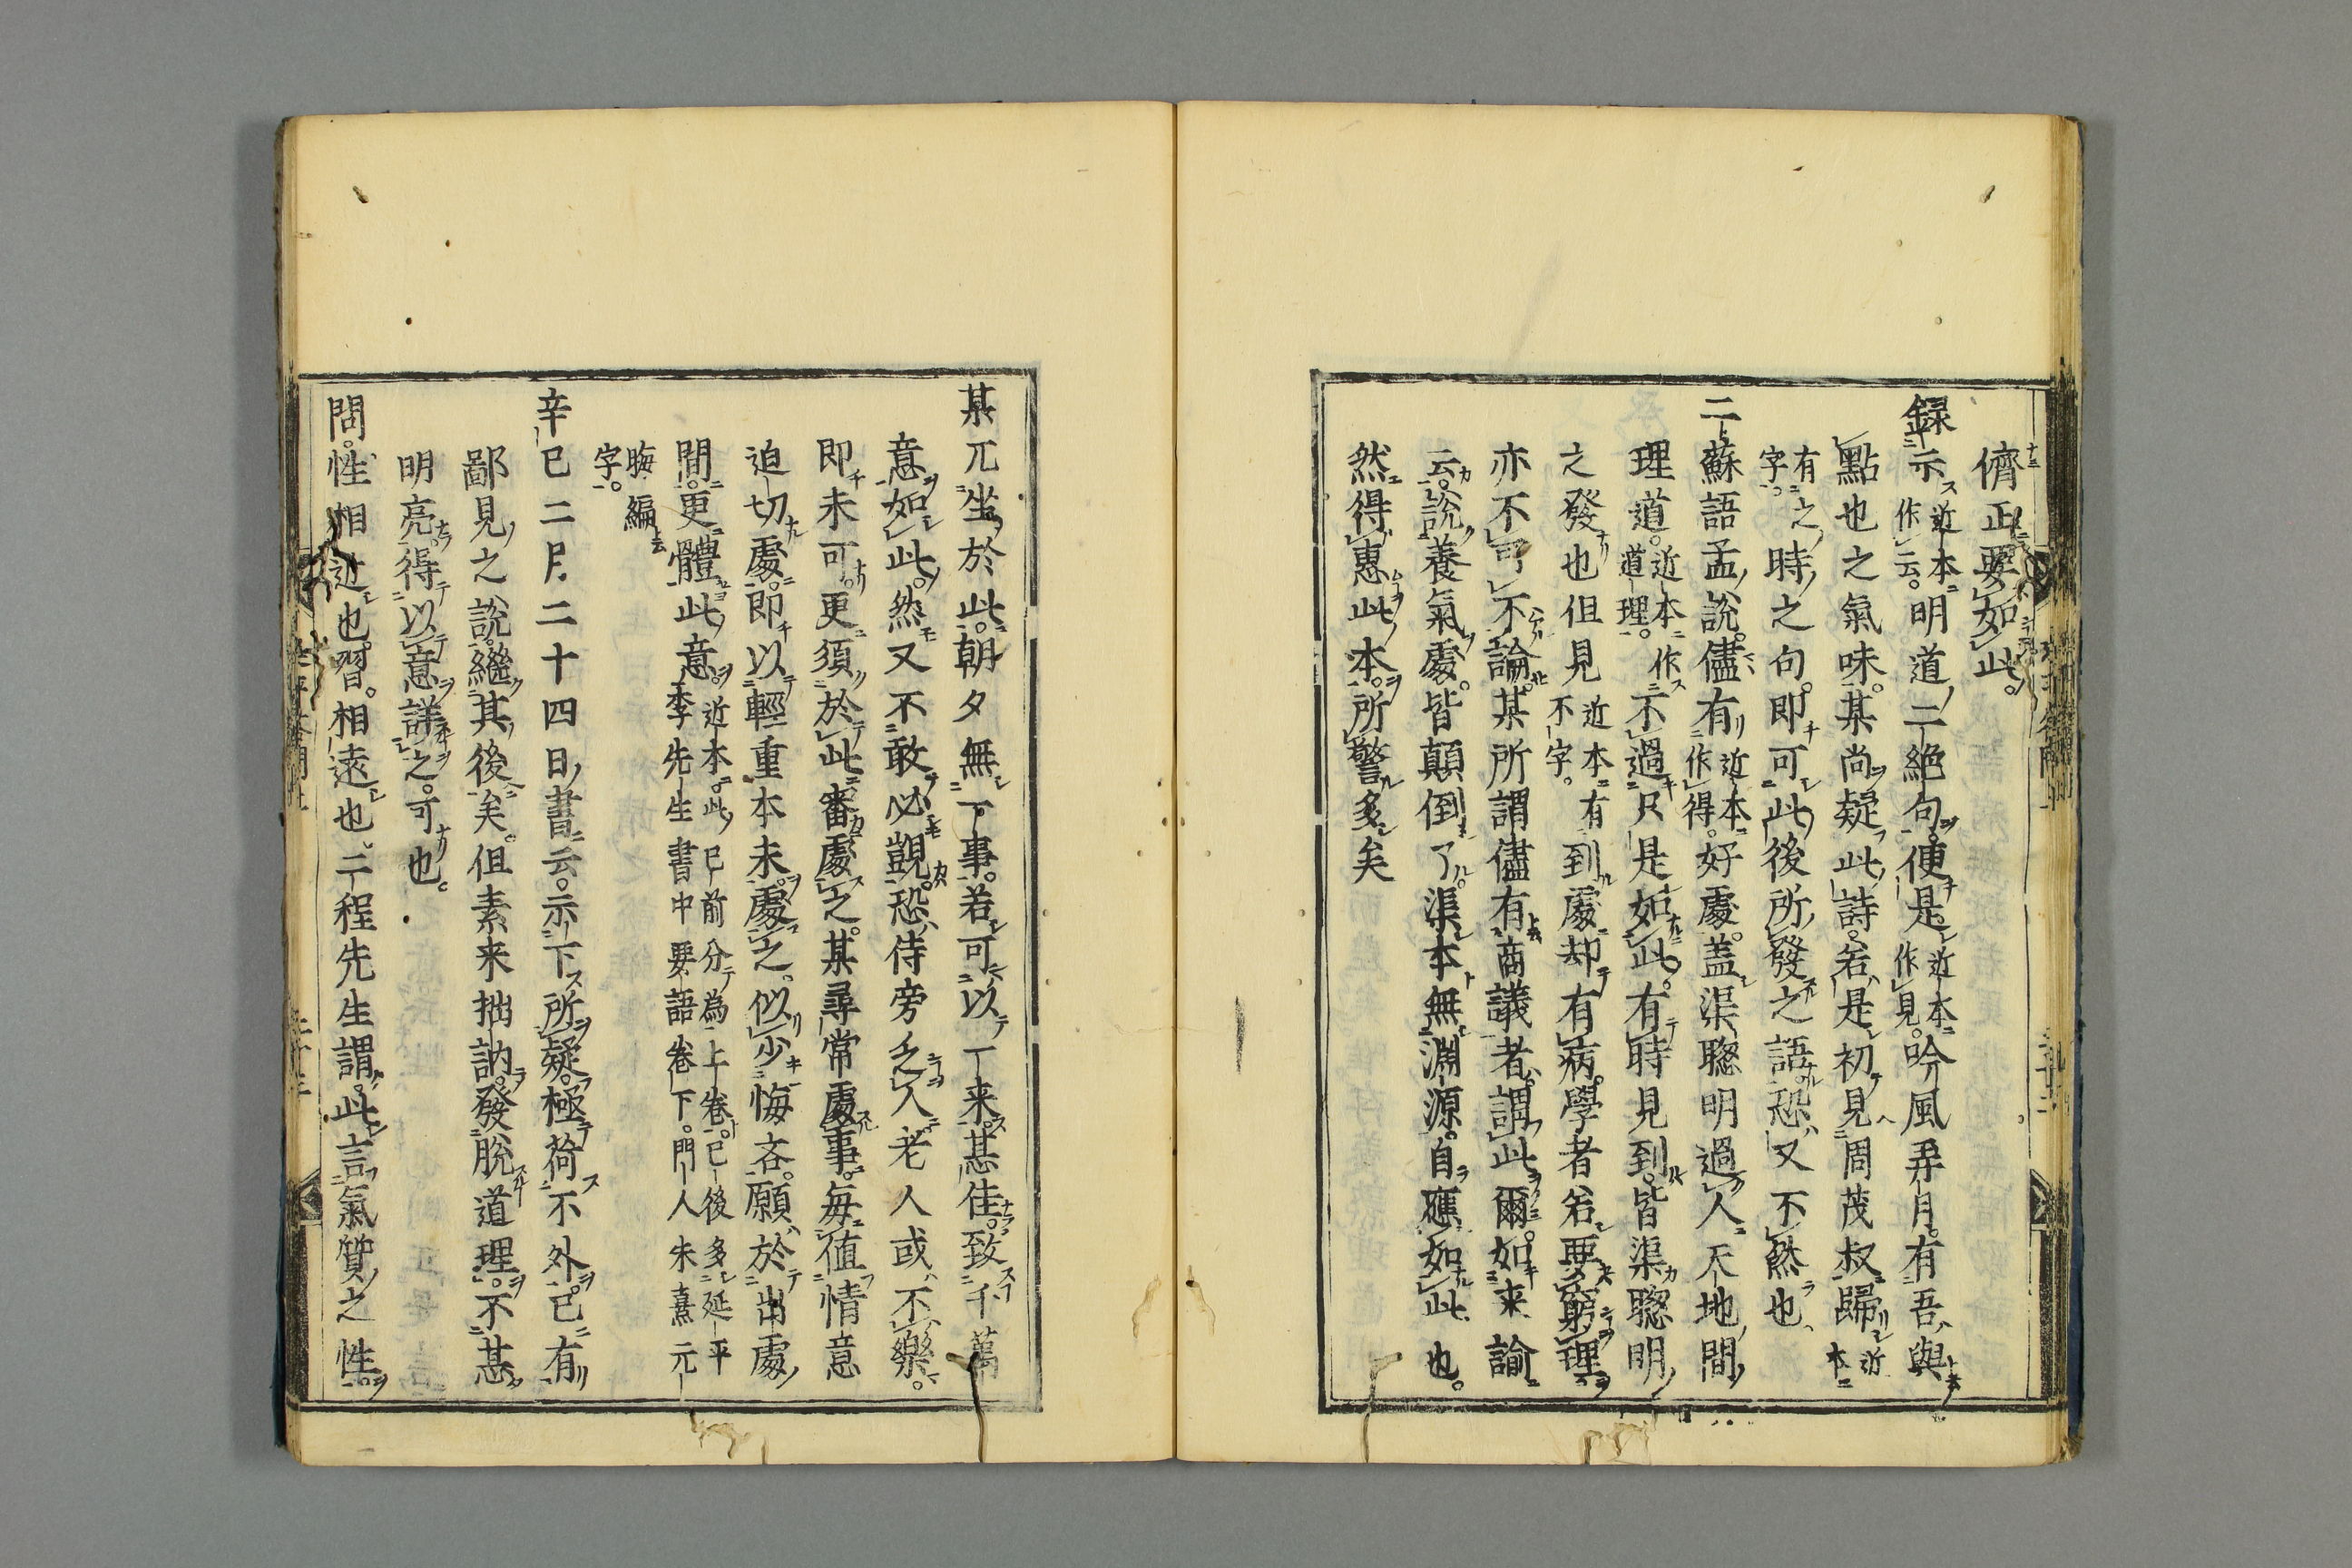 儕正要如此。
録示近本作云。明道二絶句。便是近本作見。吟風弄月。有吾與
點也之氣味。某尚疑此詩。若是初見周茂叔歸近本
有之字。時之句。即可此後所發之語。恐又不然也
二蘇語孟說。儘有近本作得。好處。蓋渠聰明過人天地間
理道。近本作道理。不過只是如此。有時見到。皆渠聰明
之發也但見近本有不字。到處却有病。學者若要窮理。
亦不可不論。某所謂儘有商議者。謂此爾。如来諭
云。說養氣處。皆顛倒了。渠本無淵源。自應如此也。
然得惠此本。所警多矣
某兀坐於此。朝夕無一事。若可以一来。甚佳。致千萬
意如此。然又不敢必覬。恐侍旁乏人老人或不樂。
即未可。更須於此審處之。某尋常處事。毎值情意
迫切處。即以輕重本末處之。似少悔吝。願於出處
間。更體此意。近本。此已前分為上卷。已後多延平李先生書中要語卷下。門人朱熹元
晦編字。
辛巳二月二十四日書云。示下所疑。極荷不外。已有
鄙見之說。繼其後矣。但素来拙訥。發脫道理。不甚
明亮。得以意詳之。可也。
問。性相近也。習。相遠也。二程先生謂。此言氣質之性。